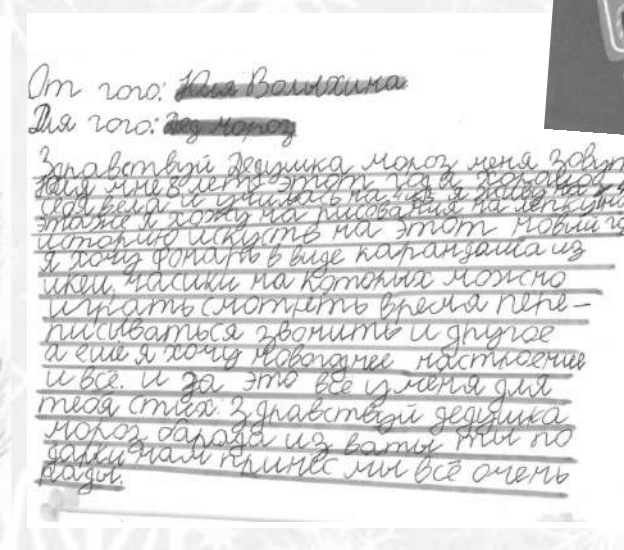 От гого: Юлия Волыхина
Для гого: Дед мороз
Здравствуй Дедушка мороз меня зовут
Юлия мне 8 лет. этот год я хорошо
себя вела и училась на 4и5 я живу на
этаже я хожу на рисования на лепку и на
историю искуств на этот новый го
я хочу фонарь в виде карандаша из
икеи, часики на которых можно
играть смотреть время пере-
писываться звонить и другое
а ещё я хочу новогоднее настроение
и всё. и за это всё у меня для
тебя стих: Здравствуй дедушка
мороз барада из ваты ты по
дарки нам принёс мы всё очень
рады.